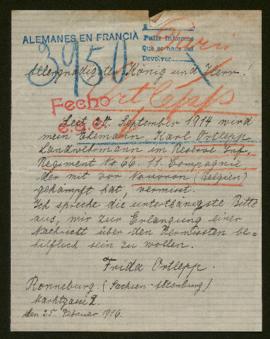 ALEMANES EN FRANCIA
Pide informes
Que se nos ha
Devolver
3950
Allergnädigster König und Herr.
Ortlepp
Fecho
Seit 20. September 1914 wird
mein Ehemann Karl Ortlepp
Landwehrmann im Reserve Inf.
Regiment No 66. 11. Compagnie
der mit vor Nouvron (Belgien)
gekämpft hat, vermisst.
Ich spreche die untertänigste Bitte
aus, mir zur Erlangung einer
Nachricht über den Vermissten be-
hilflich sein zu wollen.
Frida Ortlepp.
Ronneburg (Sachsen-Altenburg)
den 25. Februar 1916.